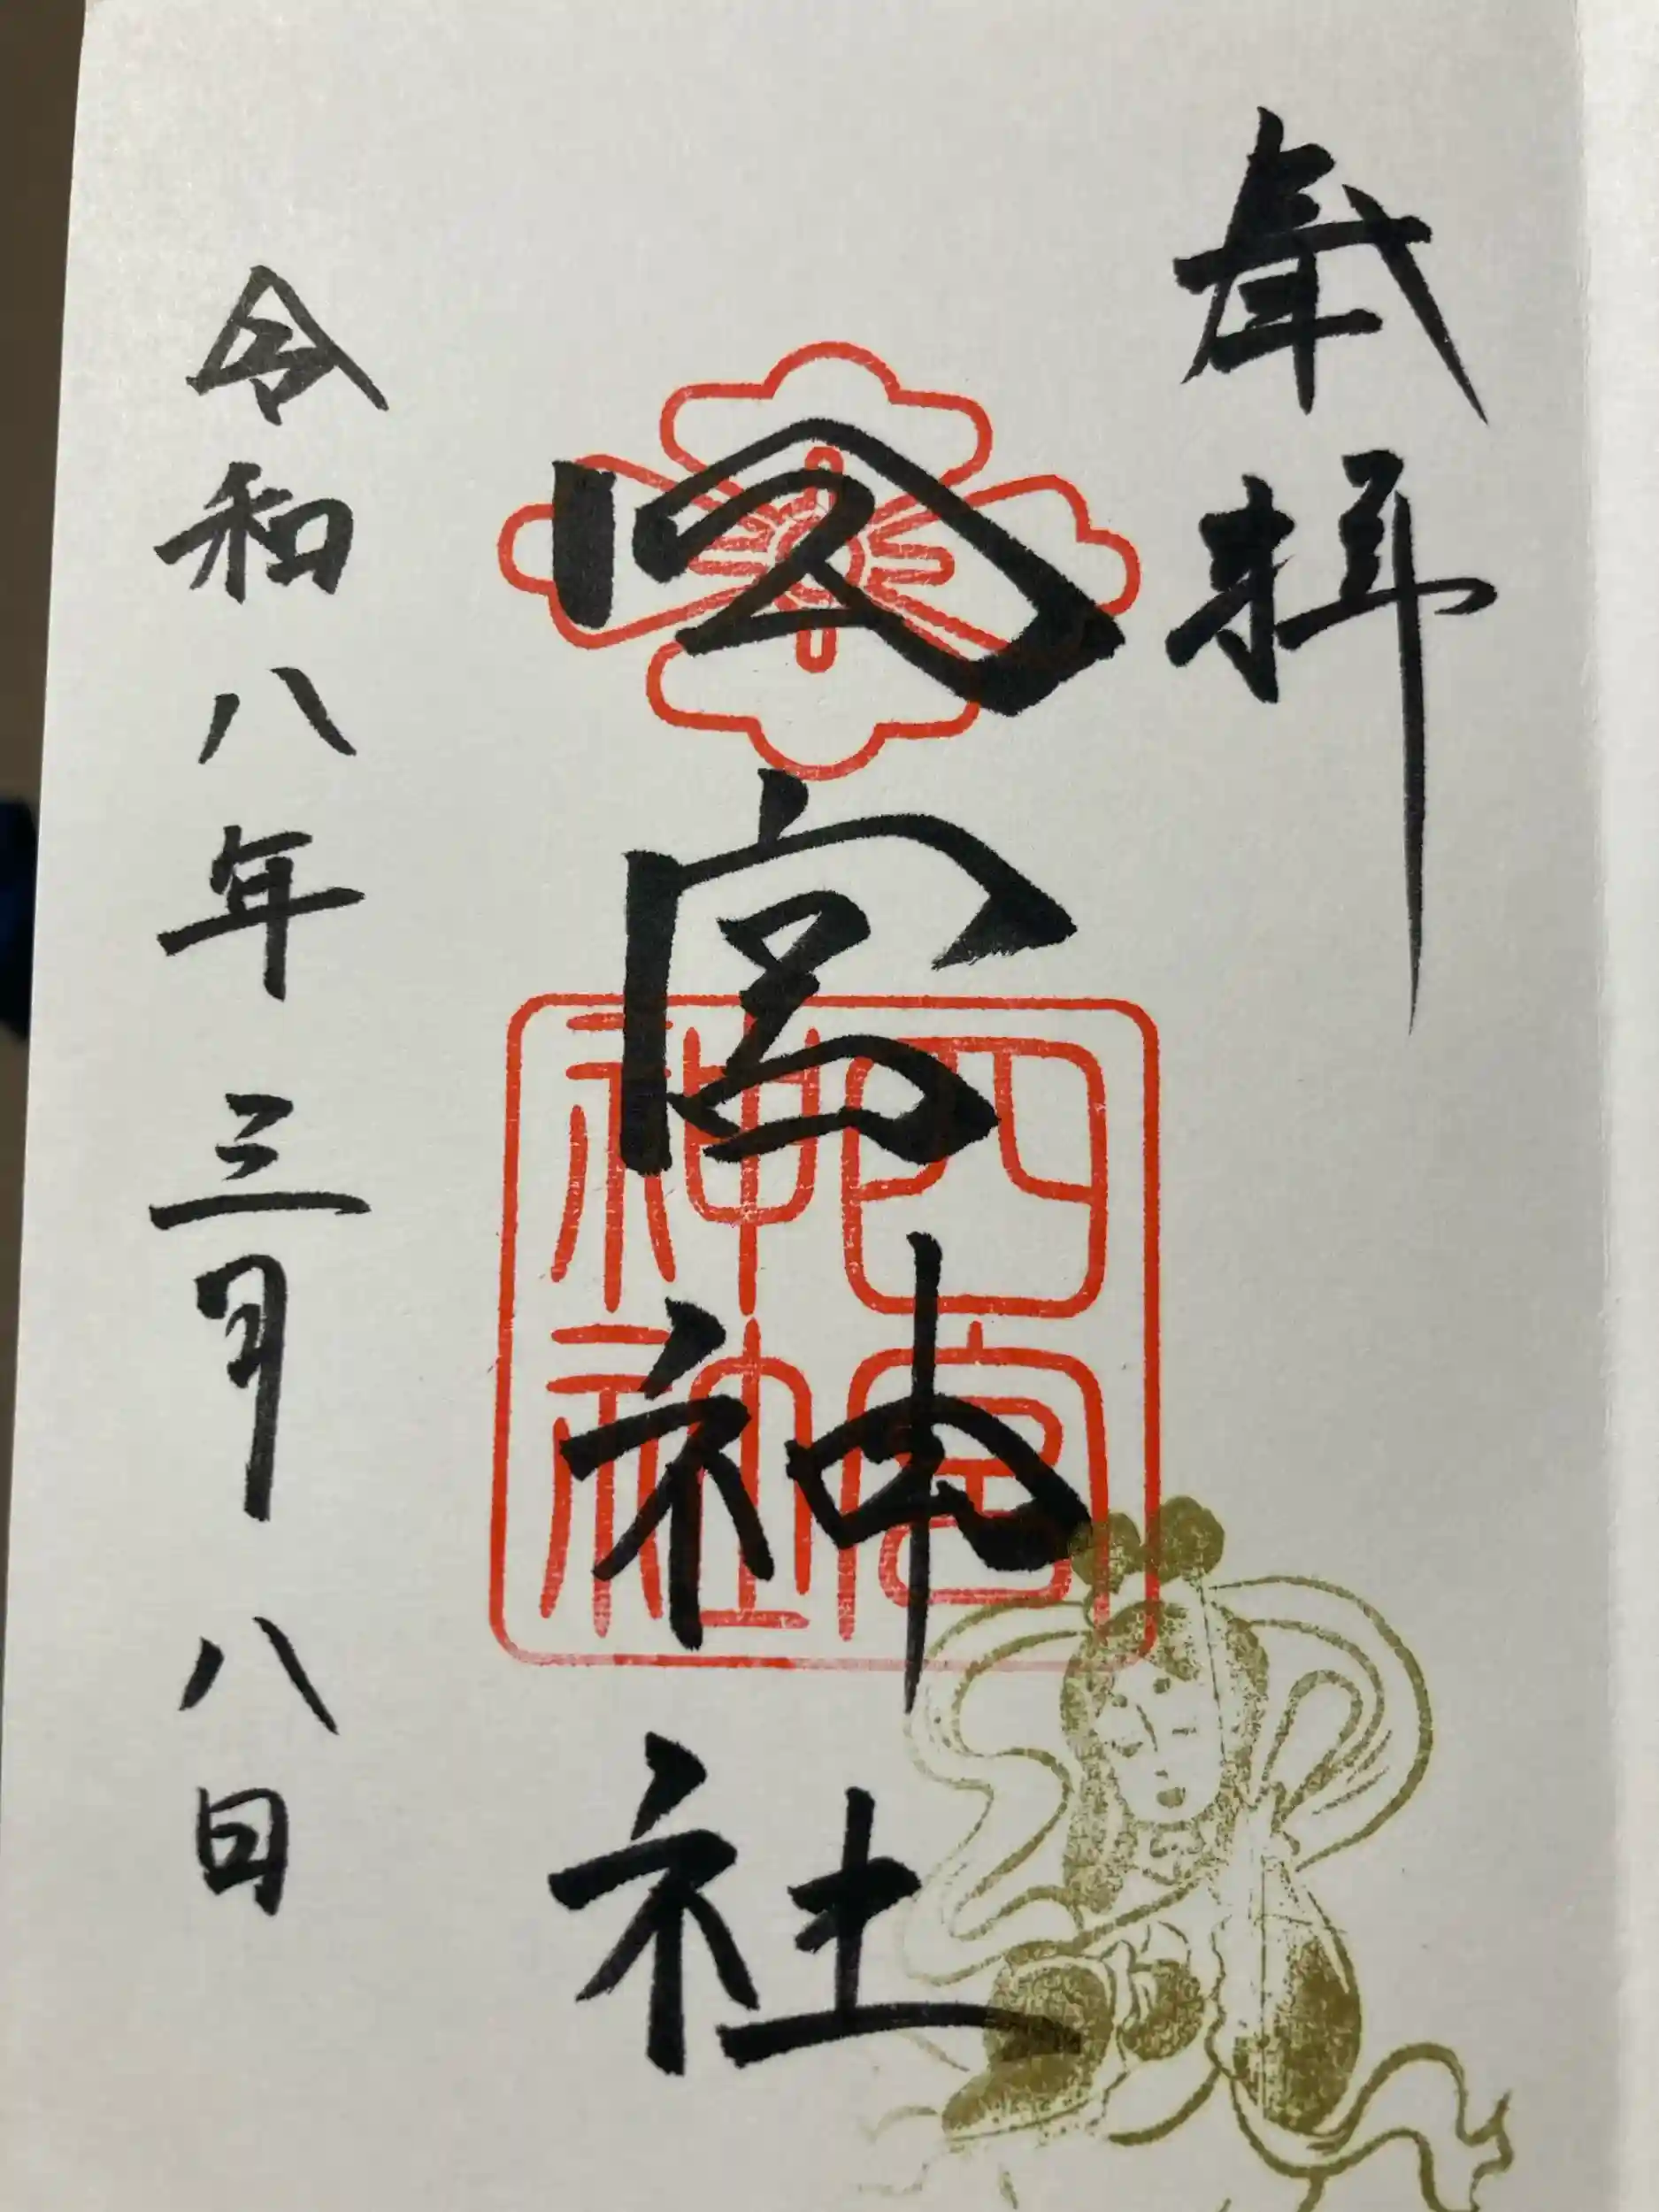 奉拝
四宮神社
四宮
神社
令和八年三月八日